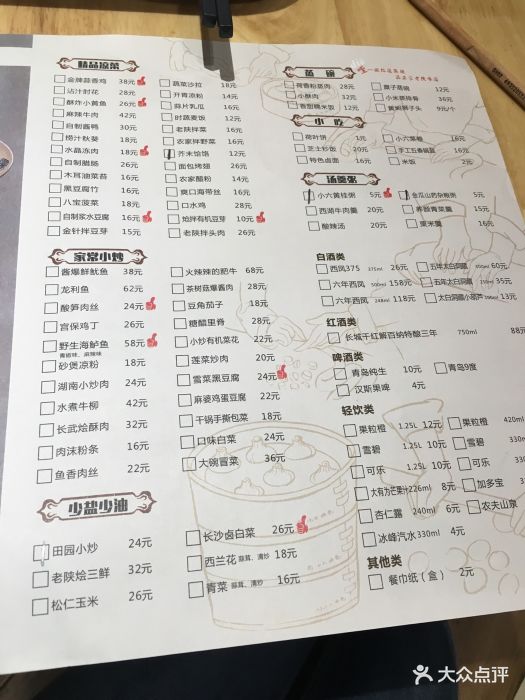 精品凉菜
金牌蒜香鸡 38元
沾汁时花 28元
酥炸小黄鱼 26元
麻辣牛肉 42元
自制酱鸭 30元
捞汁秋葵 26元
水晶冻肉 18元
自制腊肠 26元
木耳油菜苔 16元
黑豆腐竹 16元
八宝菠菜 18元
自制浆水豆腐 16元
金针拌豆芽 16元
蔬菜沙拉 18元
开胃凉粉 14元
蒜片乳瓜 16元
时蔬麦饭 12元
老陕拌菜 16元
农家拌野菜 16元
芥末饸饹 12元
面包烤翅
农家醋粉 14元
爽口海带丝 16元
口水鸡 28元
炝拌有机豆芽 10元
老陕拌头肉 26元
蒸碗
荷香粉蒸肉 28元
小酥肉 32元
香甜糯米饭 16元
粟子蒸糖 12元
小米蒸排骨 36元
黄焖狮子头 9元/个
小吃
荷叶饼 1元
芝士炒饭 20元
特色卤面 16元
小六葱糍 16元
手工五香锅盔 16元
米饭 2元
汤羹粥
小六黄桂粥 5元
西湖牛肉羹 20元
酸辣汤 20元
金瓜山药杂粮粥 5元
养颜青菜羹 15元
粟米羹 16元
家常小炒
酱爆鲜鱿鱼 38元
龙利鱼 62元
酸笋肉丝 24元
宫保鸡丁 26元
野生海鲈鱼 58元
青椒味、麻辣味
砂煲凉粉 18元
湖南小炒肉 24元
水煮牛柳 42元
长武烩酥肉 32元
肉沫粉条 16元
鱼香肉丝 22元
火辣辣的肥牛 68元
茶树菇爆酱肉 28元
豆角茄子 18元
糖醋里脊 28元
小炒有机菜花 22元
莲菜炒肉 20元
雪菜黑豆腐 24元
麻婆鸡蛋豆腐 22元
干锅手撕包菜 18元
口味白菜 24元
大碗冒菜 36元
少盐少油
田园小炒 24元
老陕烩三鲜 32元
松仁玉米 26元
长沙卤白菜 26元
西兰花 蒜茸、清炒 18元
青菜 蒜茸、清炒 16元
白酒类
西凤375 375ml 26元
六年西凤 500ml 158元
六年西凤 248ml 118元
五年太白洞藏 500ml 60元
五年太白洞藏 250ml 35元
太白洞藏小葫芦 13元
红酒类
长城干红解百纳特酿三年 750ml 88元
啤酒类
青岛纯生 10元
汉斯果啤 4元
青岛9度
轻饮类
果粒橙 1.25L 12元
雪碧 1.25L 10元
可乐 1.25L 10元
大有方芒果汁226ml 8元
杏仁露 240ml 6元
冰峰汽水330ml 4元
果粒橙 420ml
雪碧 330ml
可乐 330ml
加多宝
农夫山泉
其他类
餐巾纸（盒） 2元
大众点评